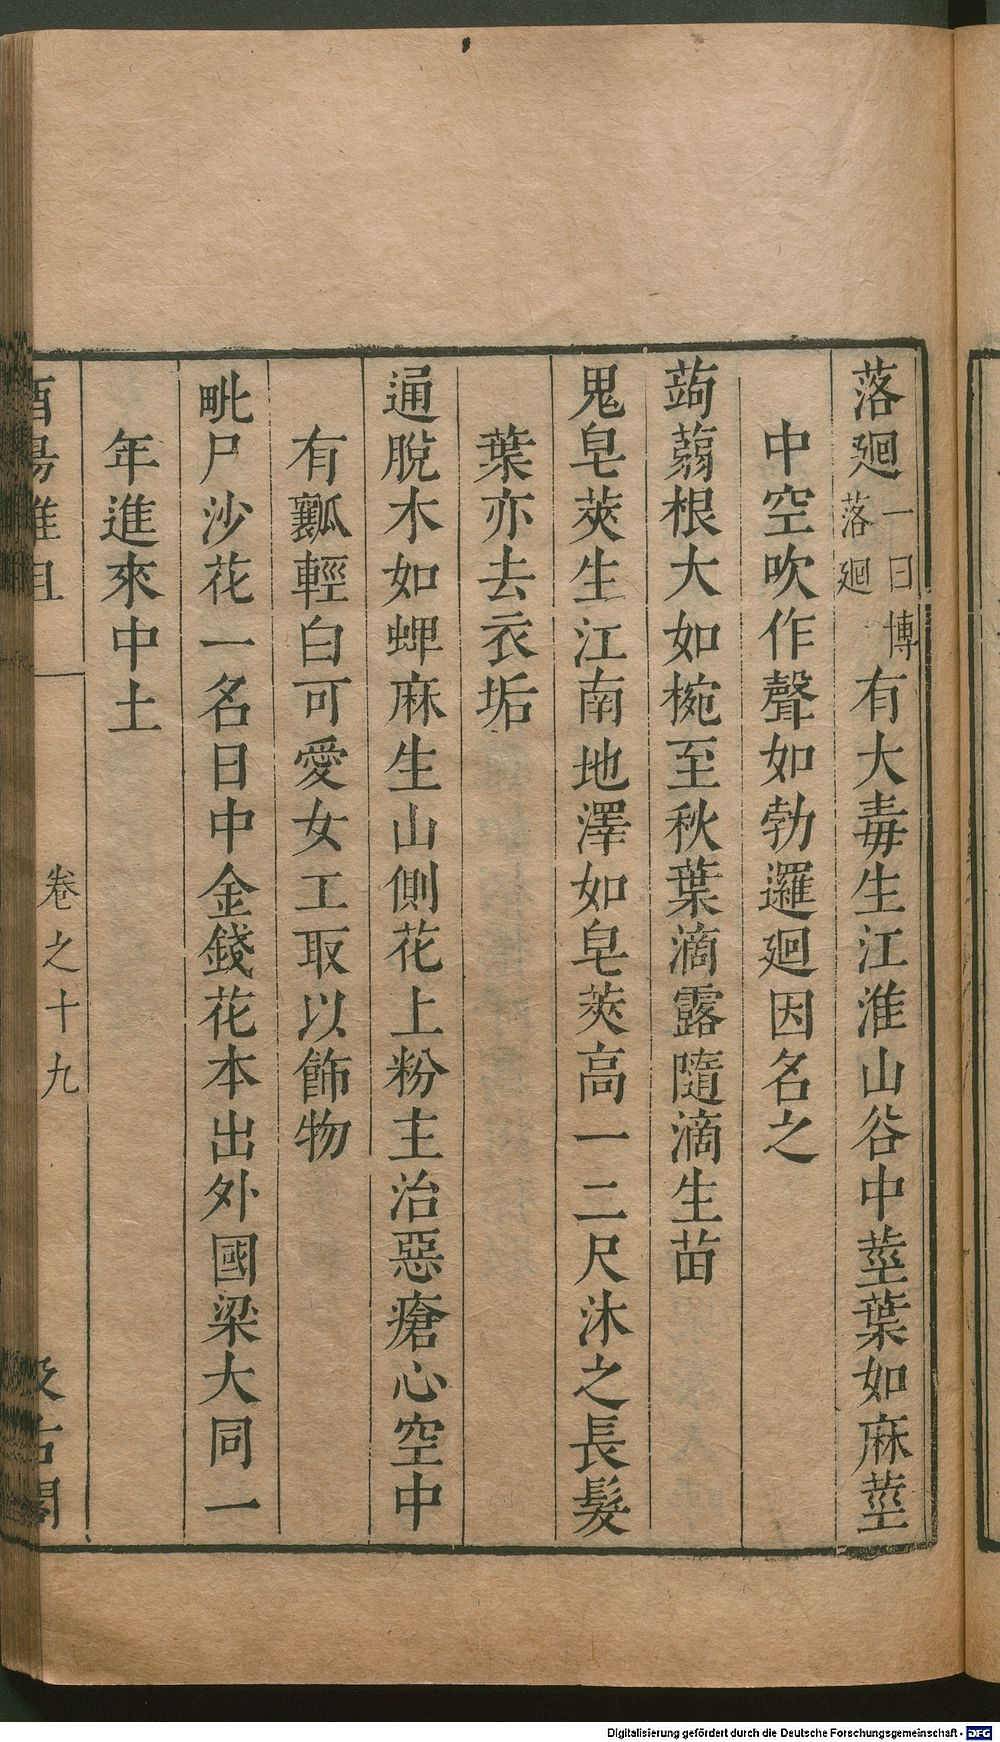 落廻一曰博落廻有大毒生江淮山谷中莖葉如麻莖
中空吹作聲如勃邏廻因名之
蒟蒻根大如椀至秋葉滴露隨滴生苗
鬼皂莢生江南地澤如皂莢高一二尺沐之長髮
葉亦去衣垢
通脫木如蜱麻生山側花上粉主治惡瘡心空中
有瓤輕白可愛女工取以飾物
毗尸沙花一名日中金錢花本出外國梁大同一
年進來中土
酉陽雜俎 卷之十九 汲古閣
Digitalisierung gefördert durch die Deutsche Forschungsgemeinschaft - DFG